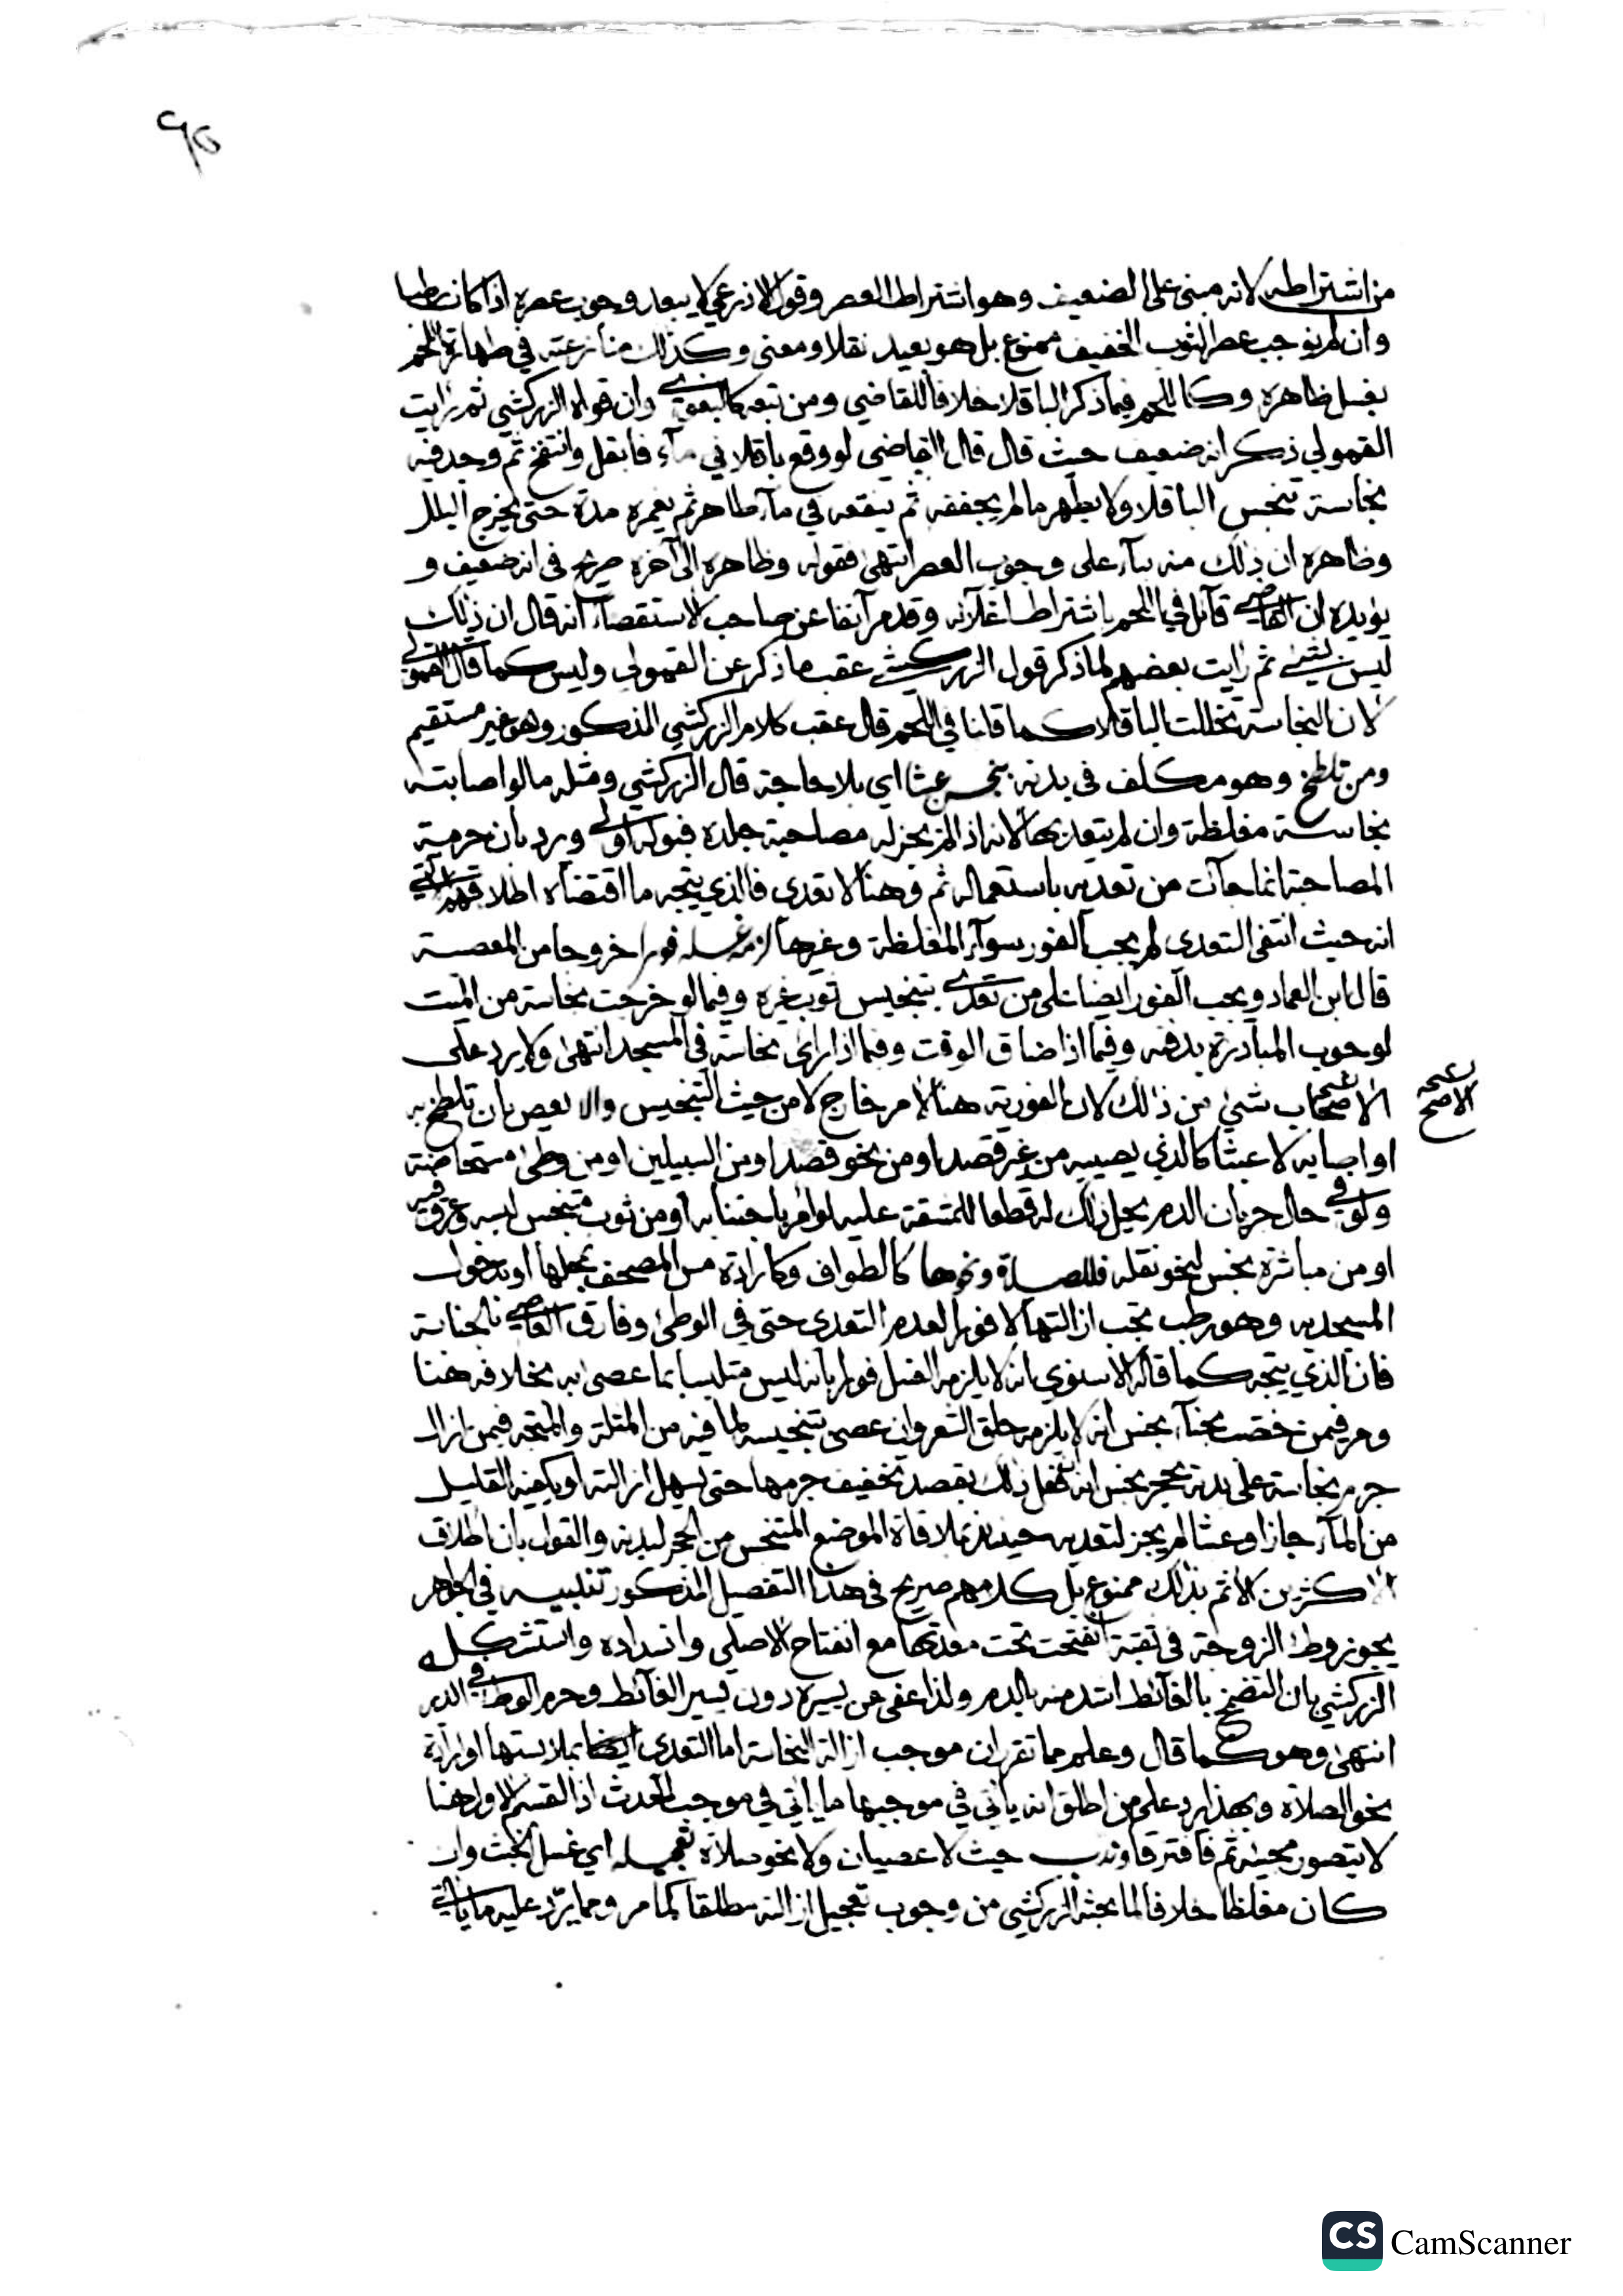 ٩٥
من اشتراطه لانه مبني على الضعيف وهو اشتراط العصر وقول الاذرعي لا يبعد وجوب عصره اذا كان رطبا
وان لم نوجب عصر الثوب الخفيف ممنوع بل هو بعيد نقلا ومعنى وكذلك منازعته في طهارة اللحم
بغسل ظاهره وكاللحم فيما ذكر الباقلا خلافا للقاضي ومن تبعه كالبغوي وان قواه الزركشي ثم رايت
القمولي ذكر انه ضعيف حيث قال قال القاضي لو وقع باقلا في مآء فابتل وانتفخ ثم وجد فيه
نجاسة تنجس الباقلا ولا يطهر ما لم يجففه ثم ينقعه في مآء طاهر ثم يغمره مدة حتى يخرج البلل
وظاهره ان ذلك منه بنآء على وجوب العصر انتهى فقوله وظاهره الى آخره صريح في انه ضعيف و
يؤيده ان القاضي قائل في اللحم باشتراط اغلآئه وقدم آنفا عن صاحب الاستقصآء انه قال ان ذلك
ليس بشيئ ثم رايت بعضهم لما ذكر قول الزركشي عقب ما ذكر عن القمولي وليس كما قال القمولي
لان النجاسة تخللت الباقلا كما قلنا في اللحم قال عقب كلام الزركشي المذكور وهو غير مستقيم
ومن تلطخ وهو مكلف في بدنه بنجس عبثا اي بلا حاجة قال الزركشي ومثله ما لو اصابته
نجاسة مغلظة وان لم يتعد بها لانه اذا لم يجز له مصاحبة جلده فبوله اولى ورد بان حرمة
المصاحبة انما جآت من تعديه باستعماله ثم وهنا لا تعدي فالذي يتجه ما اقتضاه اطلاقهم الآتي
انه حيث انتفى التعدي لم يجب الفور سوآء المغلظة وغيرها لزمه غسله فورا خروجا من المعصية
قال ابن العماد ويجب الفور ايضا على من تعدى بتنجيس ثوب غيره وفيما لو خرجت نجاسة من الميت
لوجوب المبادرة بدفنه وفيما اذا ضاق الوقت وفيما اذا راى نجاسة في المسجد انتهى ولا يرد على
الاصحاب شيئ من ذلك لان الفورية هنا لامر خارج لا من حيث التنجيس والا يعص بان تلطخ به
الاصح
او اصابه لا عبثا كالذي يصيبه من غير قصد او من نحو فصد او من السبيلين او من وطئ مستحاضة
ولو في حال جريان الدم يحل ذلك له قطعا للمشقة عليه لو امر باجتنابه او من ثوب متنجس لبسه وعرق فيه
او من مباشرة نجس لنحو نقله فللصلاة ونحوها كالطواف وكارادة مس المصحف بمحلها او يدخول
المسجد به وهو رطب تجب ازالتها لا فورا لعدم التعدي حتى في الوطئ وفارق العاصي بالجنابة
فان الذي يتجه كما قاله الاسنوي انه لا يلزمه الغسل فورا بانه ليس متلبسا بما عصى به بخلافه هنا
ومر فيمن خضب بحنآء نجس انه لا يلزمه حلق الشعر وان عصى بتنجيسه لما فيه من المثلة والمتجه فيمن ازال
جرم نجاسة على بدنه بحجر نجس انه ان فعل ذلك بقصد تخفيف جرمها حتى يسهل ازالته او يكفيه القليل
من المآء جاز او عبثا لم يجز لتعديه حينئذ بملاقاة الموضع المتنجس من الحجر لبدنه والقول بان اطلاق
الاكثرين الاثم بذلك ممنوع بل كلامهم صريح في هذا التفصيل المذكور تنبيه في الجواهر
يجوز وطئ الزوجة في ثقبة انفتحت تحت معدتها مع انفتاح الاصلي وانسداده واستشكله
الزركشي بان التضمخ بالغآئط اشد منه بالدم ولذا عفي عن يسيره دون يسير الغآئط وحرم الوطئ في الدبر
انتهى وهو كما قال وعلم مما تقرر ان موجب ازالة النجاسة اما التعدي ايضا بملابستها او ارادة
نحو الصلاة وبهذا يرد على من اطلق انه يأتي في موجبها ما ياتي في موجب الحدث اذ القسم الاول هنا
لا يتصور مجيئه ثم فافترقا وندب حيث لا عصيان ولا نحو صلاة تعجيله اي غسل الخبث وان
كان مغلظا خلافا لما بحثه الزركشي من وجوب تعجيل ازالته مطلقا كما مر ومما يرد عليه ما ياتي
CS CamScanner